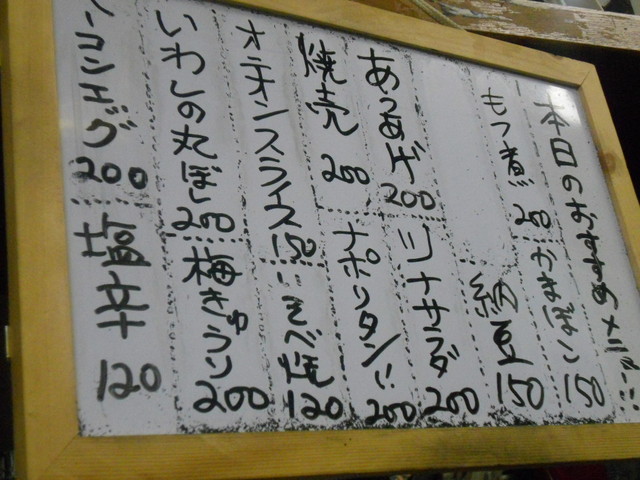 本日のおすすめメニュー
もつ煮 200 かまぼこ 150
納豆 150
あつあげ 200 ツナサラダ 200
焼売 200 ナポリタン!! 200
オニオンスライス 150 いそべ焼 120
いわしの丸ぼし 200 梅きゅうり 200
コンエッグ 200 塩辛 120